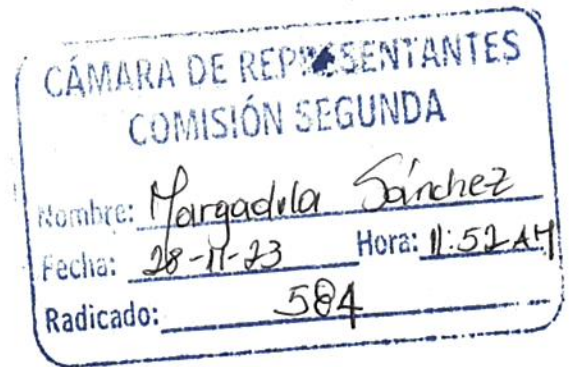 CÁMARA DE REPRESENTANTES
COMISIÓN SEGUNDA
Nombre: Sánchez
Fecha: 28-11-23 Hora: 11:52 AM
Radicado: 584